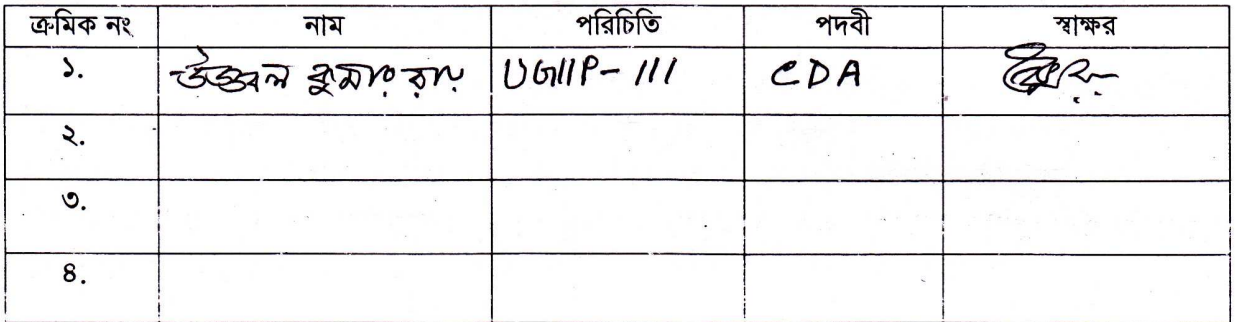 ক্রমিক নং নাম পরিচিতি পদবী স্বাক্ষর
১. উজ্জ্বল কুমার রায় UGIIP-III CDA
২.
৩.
৪.